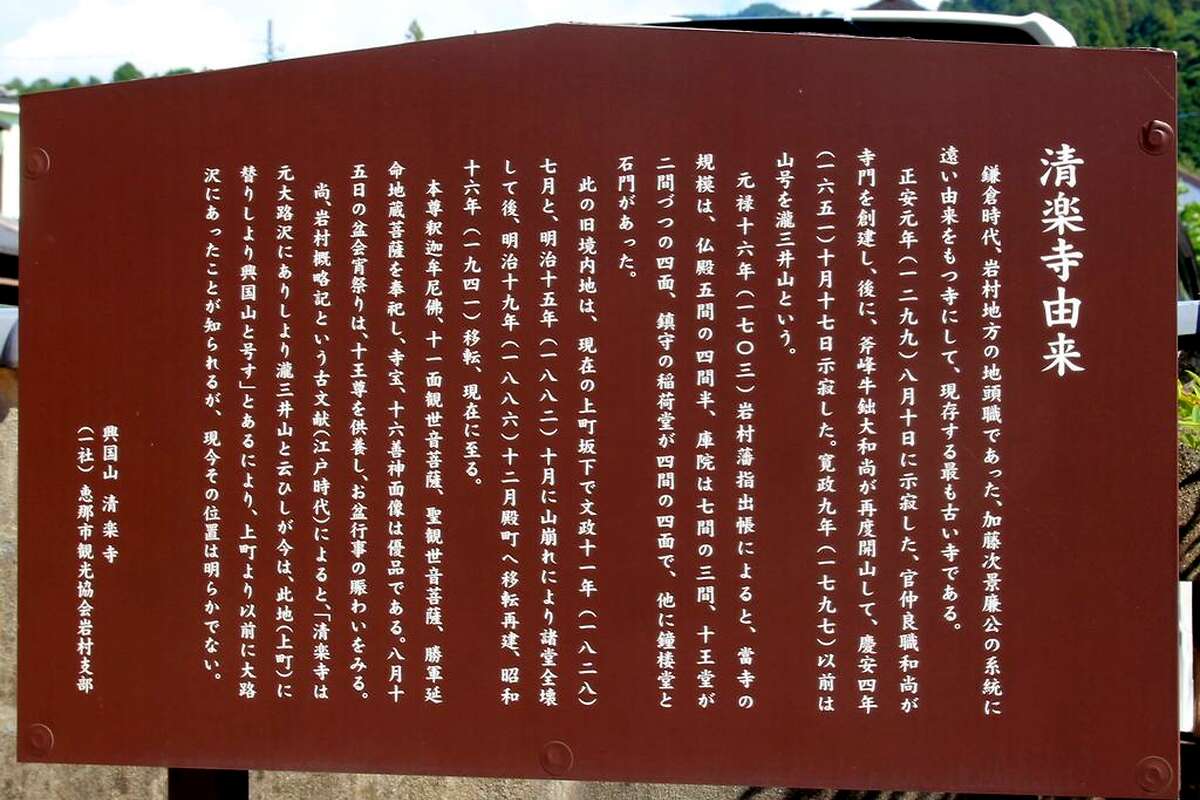 清楽寺由来
鎌倉時代、岩村地方の地頭職であった、加藤次景廉公の系統に
遠い由来をもつ寺にして、現存する最も古い寺である。
正安元年（一二九九）八月十日に示寂した、官仲良職和尚が
寺門を創建し、後に、斧峰牛鈯大和尚が再度開山して、慶安四年
（一六五一）十月十七日示寂した。寛政九年（一七九七）以前は
山号を瀧三井山という。
元禄十六年（一七〇三）岩村藩指出帳によると、當寺の
規模は、仏殿五間の四間半、庫院は七間の三間、十王堂が
二間づつの四面、鎮守の稲荷堂が四間の四面で、他に鐘楼堂と
石門があった。
此の旧境内地は、現在の上町坂下で文政十一年（一八二八）
七月と、明治十五年（一八八二）十月に山崩れにより諸堂全壊
して後、明治十九年（一八八六）十二月殿町へ移転再建、昭和
十六年（一九四一）移転、現在に至る。
本尊釈迦牟尼佛、十一面観世音菩薩、聖観世音菩薩、勝軍延
命地蔵菩薩を奉祀し、寺宝、十六善神画像は優品である。八月十
五日の盆会宵祭りは、十王尊を供養し、お盆行事の賑わいをみる。
尚、岩村概略記という古文献（江戸時代）によると、「清楽寺は
元大路沢にありしより瀧三井山と云ひしが今は、此地（上町）に
替りしより興国山と号す」とあるにより、上町より以前に大路
沢にあったことが知られるが、現今その位置は明らかでない。
興国山 清楽寺
（一社）恵那市観光協会岩村支部